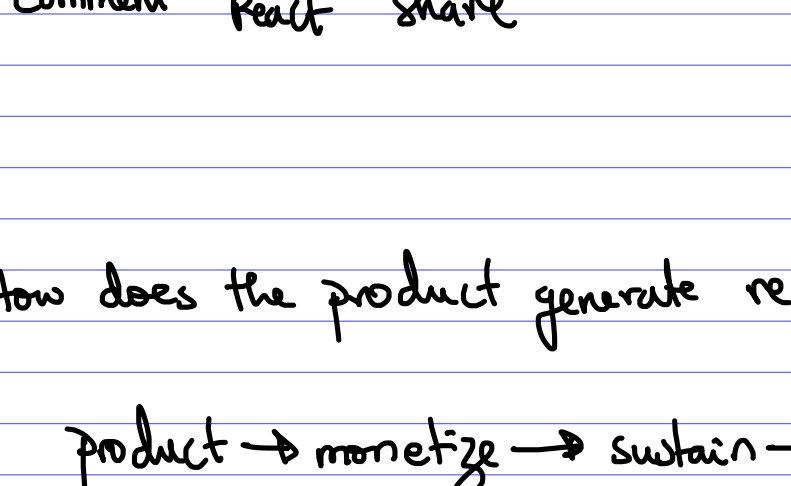 Comment React Share
How does the product generate re
product → monetize → sustain -